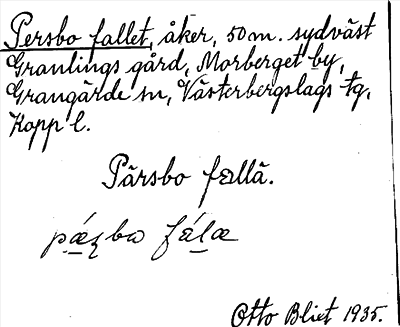 Persbo fallet, åker, 50 m. sydväst
Granlings gård, Morberget by,
Grangärde sn, Västerbergslags tg,
Kopp l.
Pärsbo fællä.
Otto Blixt 1935.